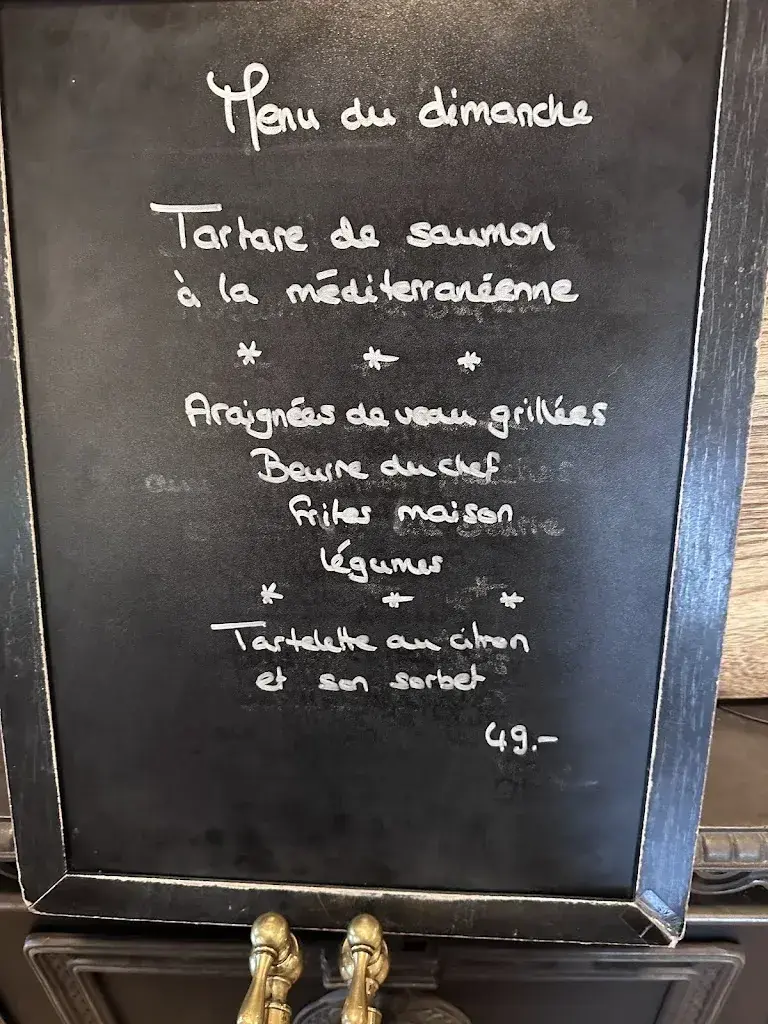 Menu du dimanche
Tartare de saumon
à la méditerranéenne
* * *
Araignées de veau grillées
Beurre du chef
Frites maison
légumes
* * *
Tartelette au citron
et son sorbet
49.-